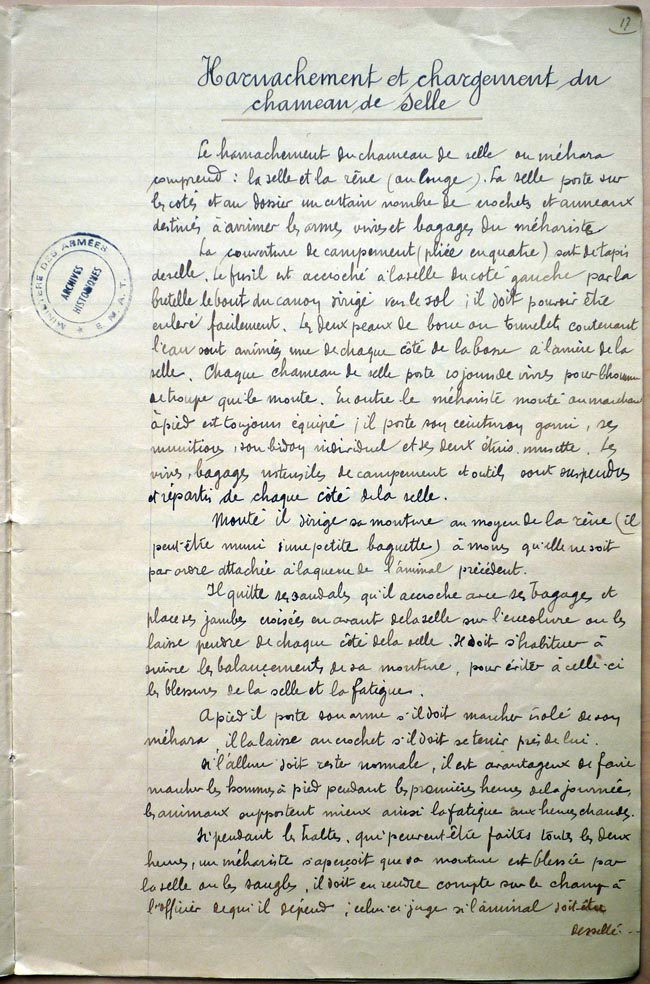 17
Harnachement et chargement du
chameau de selle
Le harnachement du chameau de selle ou méhara
comprend : la selle et la rêne (ou longe). La selle porte sur
les cotés et au dossier un certain nombre de crochets et anneaux
destinés à arrimer les armes vivres et bagages du méhariste
La couverture de campement (pliée en quatre) sert de tapis
de selle. Le fusil est accroché à la selle du coté gauche par la
bretelle le bout du canon dirigé vers le sol ; il doit pouvoir être
enlevé facilement. Les deux peaux de bouc ou tonnelets contenant
l'eau sont arrimés une de chaque côté de la basse à l'arrière de la
selle. Chaque chameau de selle porte 10 jours de vivres pour l'homme
de troupe qui le monte. En outre le méhariste monté ou marchant
à pied est toujours équipé ; il porte son ceinturon garni, ses
munitions, son bidon individuel et ses deux étuis musette. Les
vivres, bagages ustensiles de campement et outils sont suspendus
et répartis de chaque côté de la selle.
Monté il dirige sa monture au moyen de la rêne (il
peut-être muni d'une petite baguette) à moins qu'elle ne soit
par ordre attachée à la queue de l'animal précédent.
Il quitte ses sandales qu'il accroche avec ses bagages et
place ses jambes croisées en avant de la selle sur l'encolure ou les
laisse pendre de chaque côté de la selle. Il doit s'habituer à
suivre les balancements de sa monture, pour éviter à celle-ci
les blessures de la selle et la fatigue.
A pied il porte son arme s'il doit marcher isolé de son
méhara, il la laisse au crochet s'il doit se tenir près de lui.
Si l'allure doit rester normale, il est avantageux de faire
marcher les hommes à pied pendant les premières heures de la journée,
les animaux supportent mieux ainsi la fatigue aux heures chaudes.
Si pendant les haltes, qui peuvent être faites toutes les deux
heures, un méhariste s'aperçoit que sa monture est blessée par
la selle ou les sangles, il doit en rendre compte sur le champ à
l'officier de qui il dépend ; celui-ci juge si l'animal doit être
dessellé. -
MINISTERE DES ARMÉES
* E.M.A.T. *
ARCHIVES
HISTORIQUES